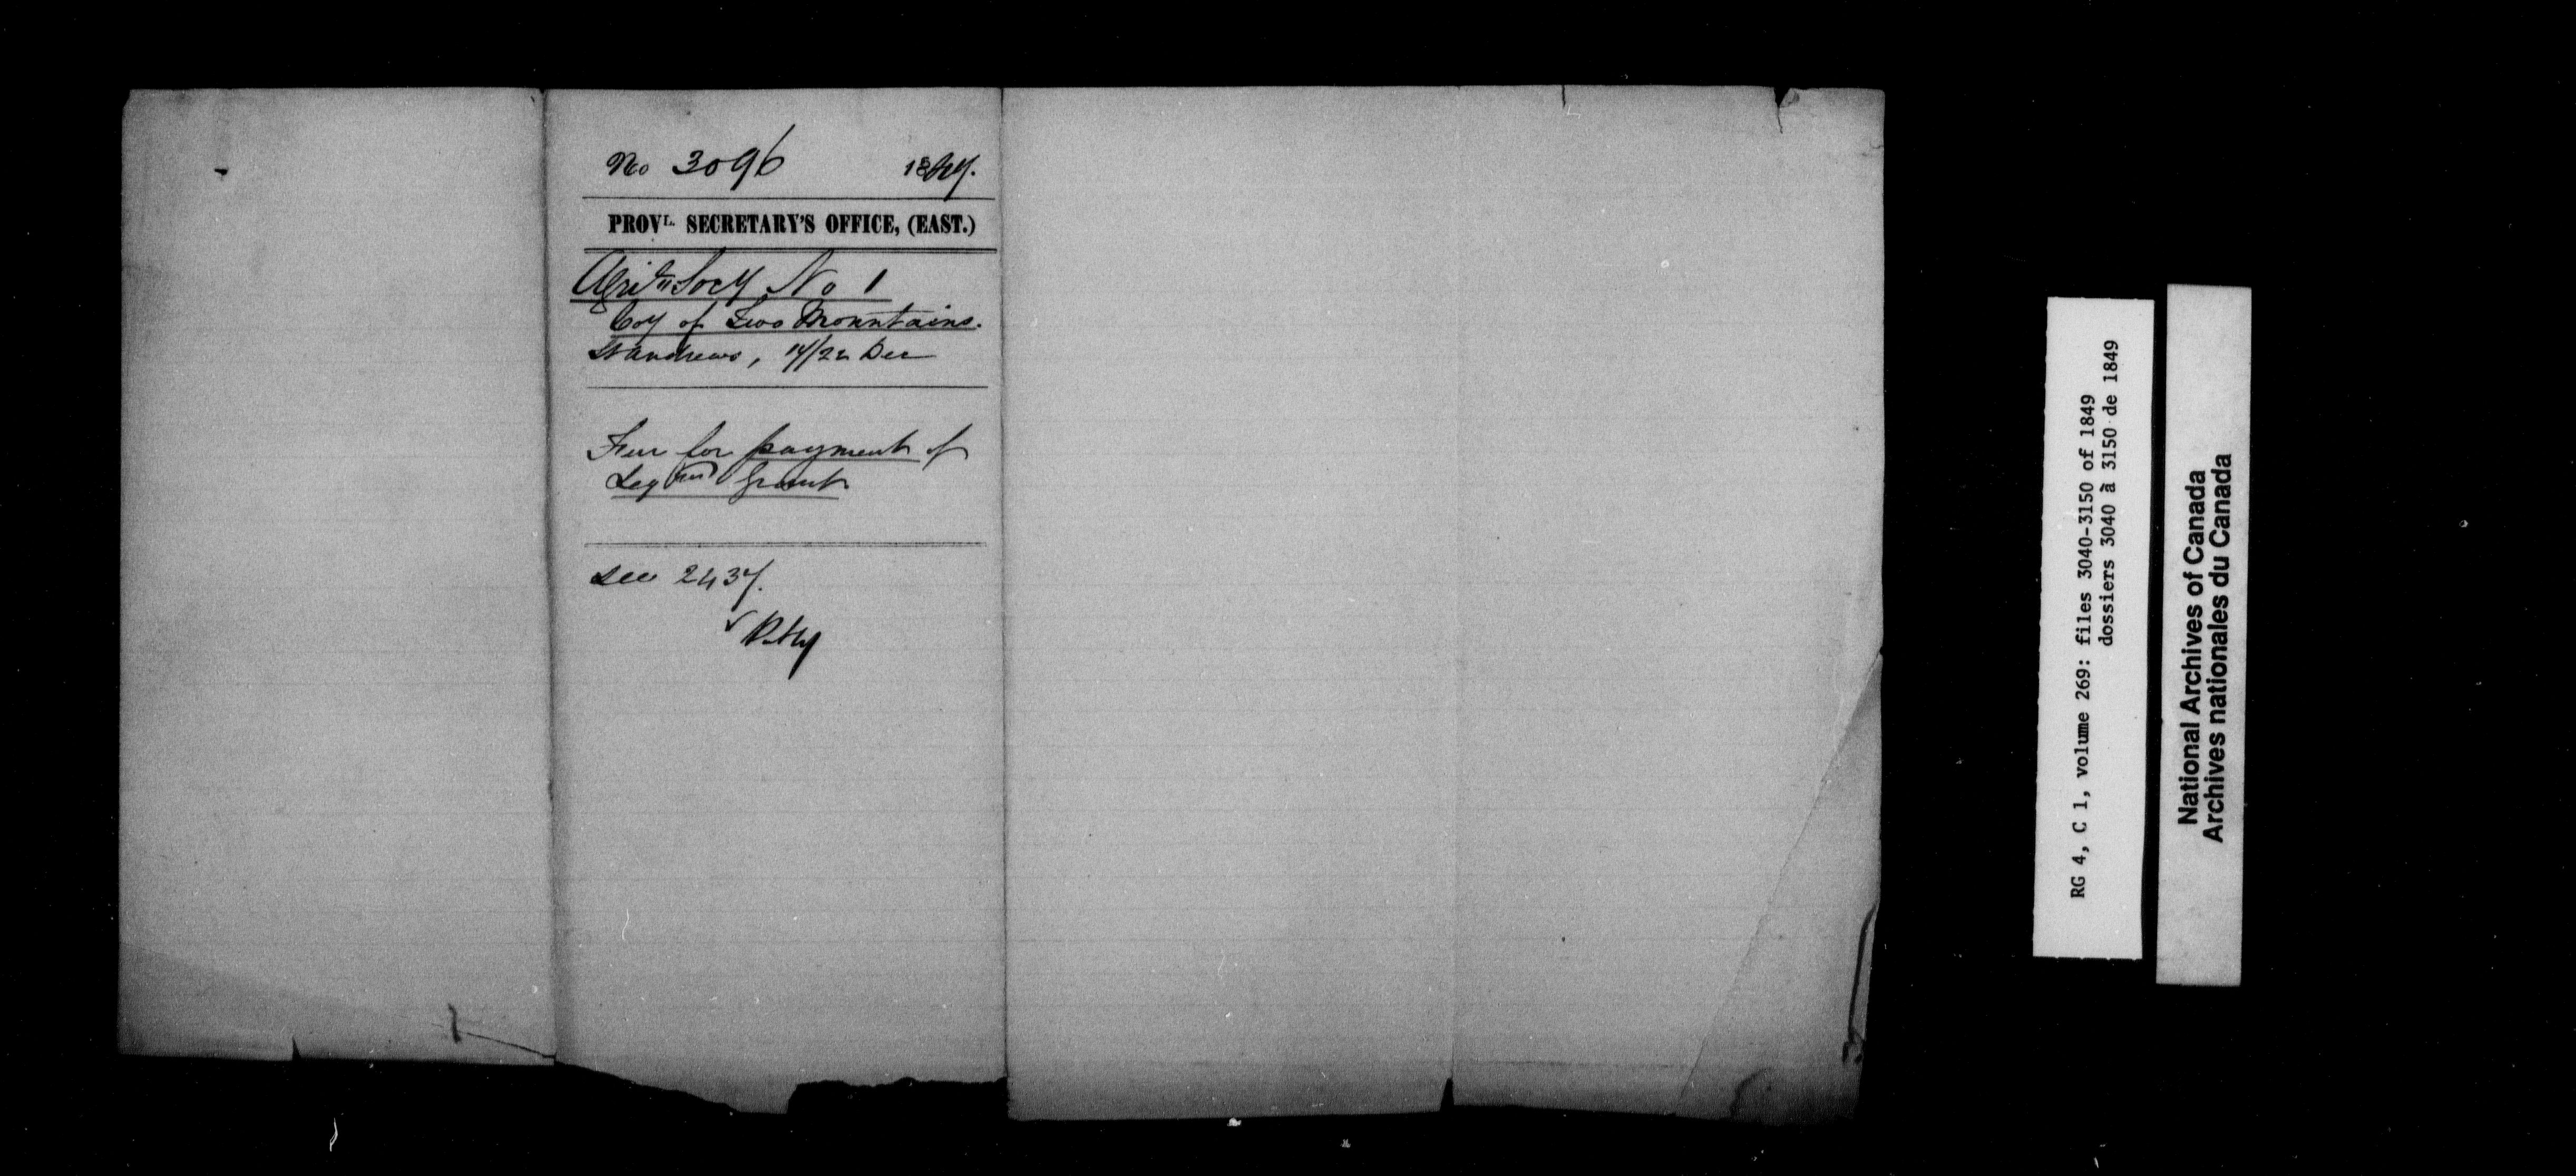 No 3096 1849.
PROVL. SECRETARY'S OFFICE, (EAST.)
Agril Socy No 1
Coy of Two Mountains.
St Andrews, 14/22 Dec
for payment of
Leg Grant
see 2437.
RG 4, C 1, volume 269: files 3040-3150 of 1849
dossiers 3040 à 3150 de 1849
National Archives of Canada
Archives nationales du Canada